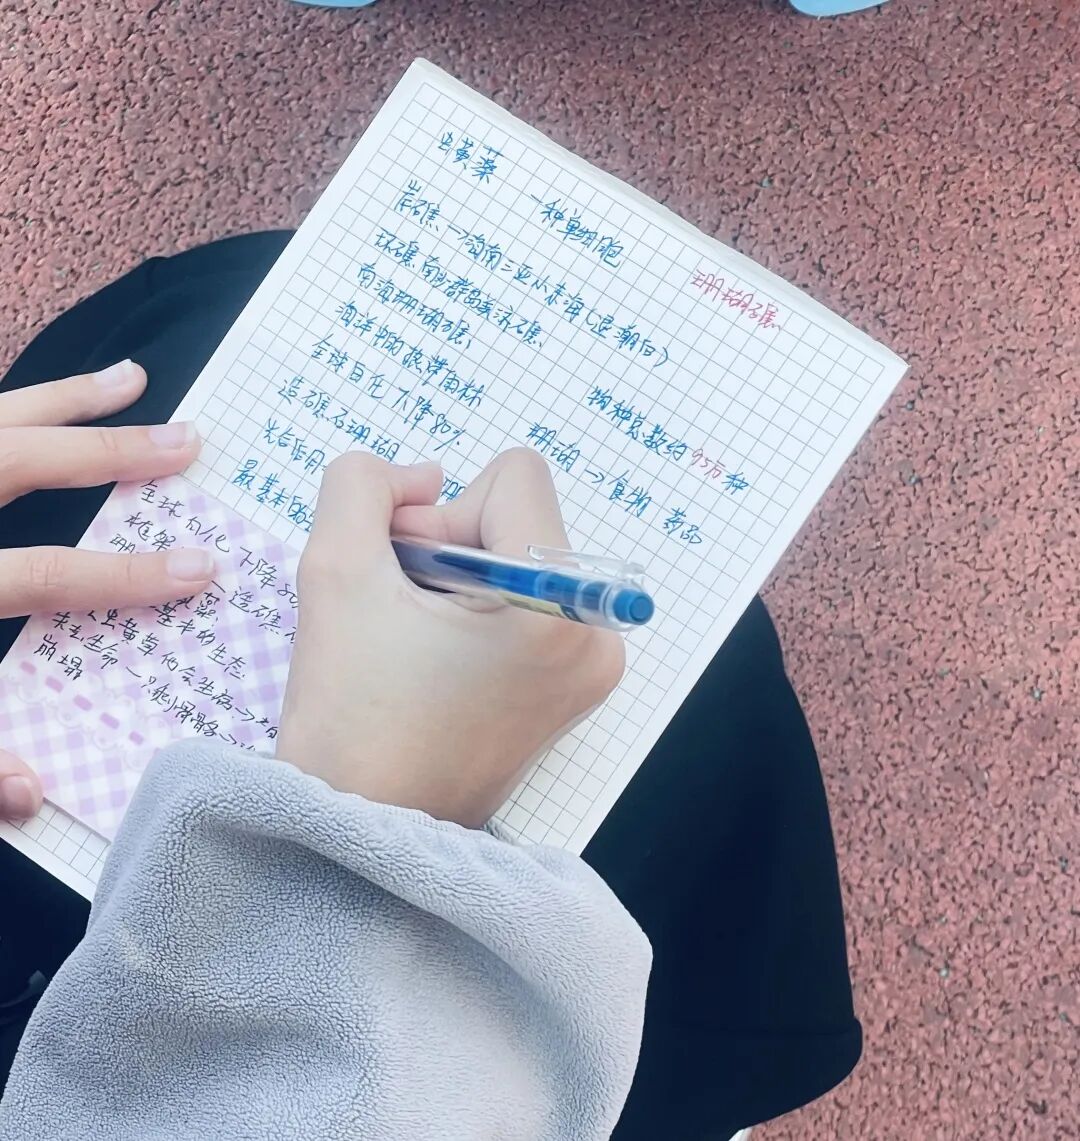 虫黄藻
一种单细胞
珊瑚礁
岸礁→海南三亚小东海(退潮后)
环礁 南沙群岛美济礁
南海珊瑚礁,
海洋中的热带雨林
物种总数细 95万 种
全球白化 下降80%
珊瑚→食物 药品
造礁石珊瑚
光合作用
最基本的
全球白化 下降80
框架
造礁
基本的生态
虫黄藻 会生病→白
失去生命→只剩骨骼→
崩塌